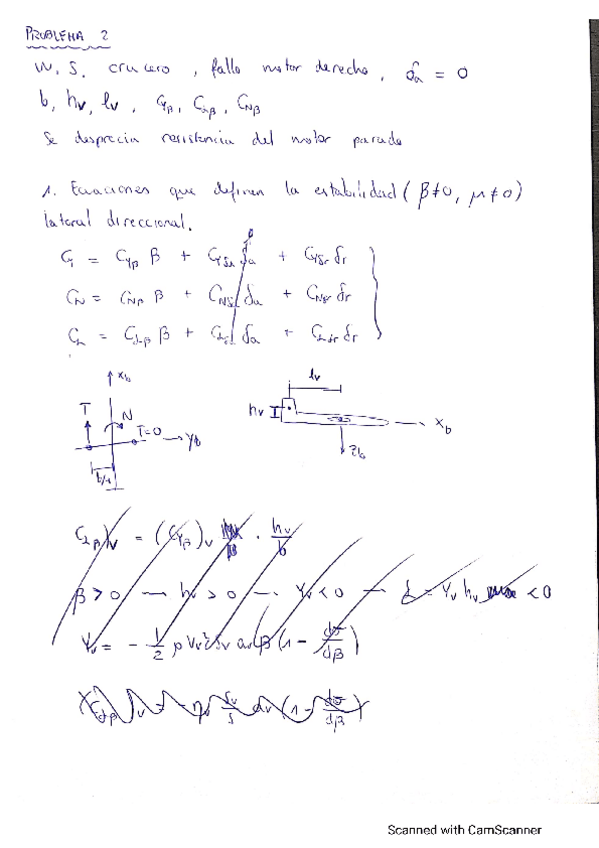 PROBLEMA 2
W, S, crucero, fallo motor derecho, δa = 0
b, hv, lv, Cyβ, Cℒβ, CNβ
Se desprecia resistencia del motor parado
1. Ecuaciones que definen la estabilidad (β≠0, μ≠0)
lateral direccional.
Cy = Cyβ β + Cyδa δa + Cyδr δr
CN = CNβ β + CNδa δa + CNδr δr
Cℒ = Cℒβ β + Cℒδa δa + Cℒδr δr
xb
T
N
T=0
yb
lv
hv
xb
zb
Cℒβ)v = (Cyβ)v · hv/b
β > 0 — hv > 0 — Yv < 0 — ℒ = Yv hv < 0
Yv = - 1/2 ρ Vv² Sv av β (1 - dσ/dβ)
Sv/S av (1 - dσ/dβ)
Scanned with CamScanner